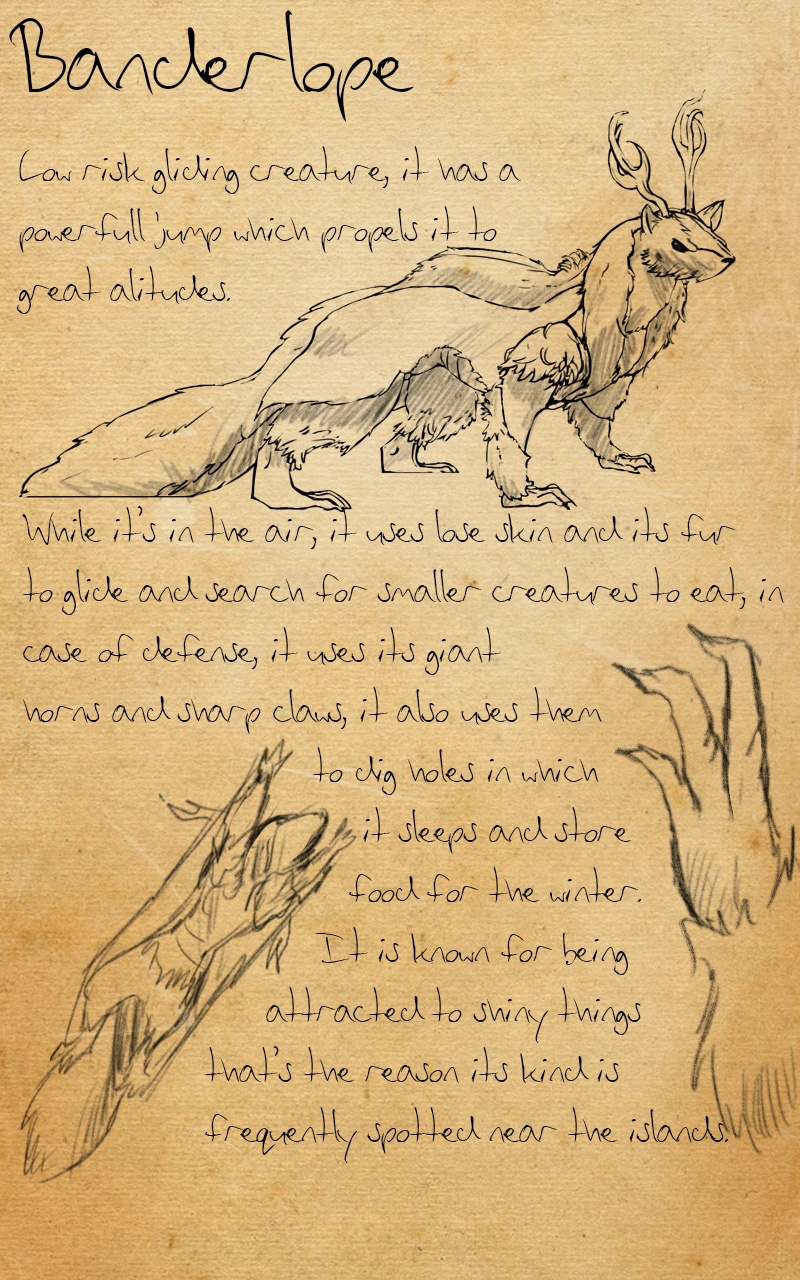 Banderlope
Low risk gliding creature, it has a
powerfull jump which propels it to
great alitudes.
While it's in the air, it uses lose skin and its fur
to glide and search for smaller creatures to eat, in
case of defense, it uses its giant
horns and sharp claws, it also uses them
to dig holes in which
it sleeps and store
food for the winter.
It is known for being
attracted to shiny things
that's the reason its kind is
frequently spotted near the islands.